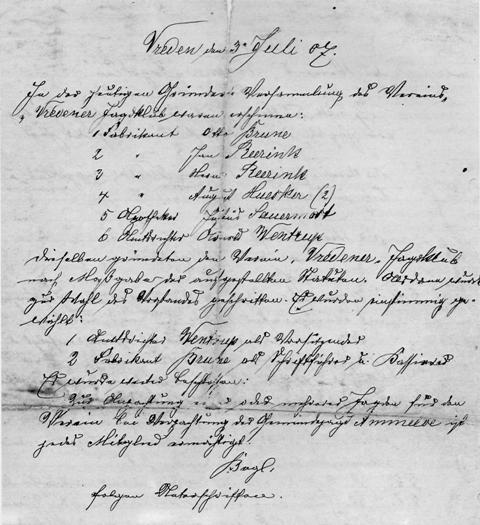 Vreden den 3n Juli 07.
In der heutigen Gründer-Versammlung des Vereins
„Vredener Jagdklub waren erschienen:
1 Fabrikant Otto Brune
2 " Jan Keerink
3 " Herm. Keerink
4 " August Huesker (2)
5 Apotheker Julius Sauermost
6 Amtsrichter Wentrup
Dieselben gründeten den Verein, Vredener Jagdklub
nach Maßgabe der aufgestellten Statuten. Alsdann wurde
zur Wahl des Vorstandes geschritten. Es wurden einstimmig ge-
wählt:
1 Amtsrichter Wentrup als Vorsitzender
2 Fabrikant Brune als Schriftführer u. Kassierer
Es wurde weiter beschlossen:
Zur Anpachtung oder mehrerer Jagden für den
Verein bei Verpachtung der Gemeindejagd Ammeloe ist
jedes Mitglied ermächtigt.
folgen Unterschriften.